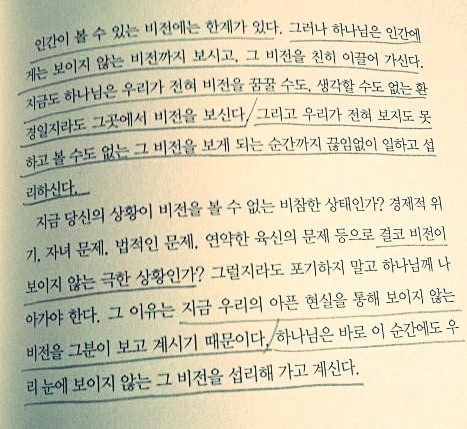 인간이 볼 수 있는 비전에는 한계가 있다. 그러나 하나님은 인간에
게는 보이지 않는 비전까지 보시고, 그 비전을 친히 이끌어 가신다.
지금도 하나님은 우리가 전혀 비전을 꿈꿀 수도, 생각할 수도 없는 환
경일지라도 그곳에서 비전을 보신다. 그리고 우리가 전혀 보지도 못
하고 볼 수도 없는 그 비전을 보게 되는 순간까지 끊임없이 일하고 섭
리하신다.
지금 당신의 상황이 비전을 볼 수 없는 비참한 상태인가? 경제적 위
기, 자녀 문제, 법적인 문제, 연약한 육신의 문제 등으로 결코 비전이
보이지 않는 극한 상황인가? 그럴지라도 포기하지 말고 하나님께 나
아가야 한다. 그 이유는 지금 우리의 아픈 현실을 통해 보이지 않는
비전을 그분이 보고 계시기 때문이다. 하나님은 바로 이 순간에도 우
리 눈에 보이지 않는 그 비전을 섭리해 가고 계신다.